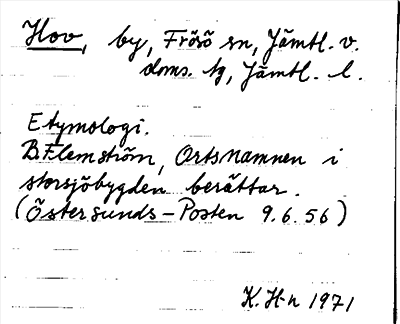 Hov, by, Frösö sn, Jämtl. v.
doms. tg, Jämtl. l.
Etymologi.
B. Flemström, Ortsnamnen i
storsjöbygden berättar.
(Östersunds-Posten 9.6.56)
K. H-n 1971